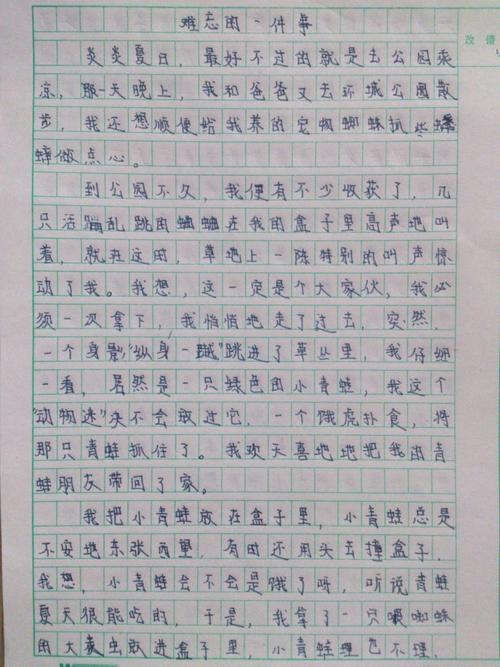 难忘的一件事
改错
炎炎夏日，最好不过的就是去公园乘
凉，那一天晚上，我和爸爸又去环城公园散
步，我还想顺便给我养的宠物蜘蛛抓些蟋
蟀做点心。
到公园不久，我便有不少收获了，几
只活蹦乱跳的蛐蛐在我的盒子里高声地叫
着，就在这时，草地上一陈特别的叫声惊
动了我。我想，这一定是个大家伙，我必
须一次拿下，我悄悄地走了过去，突然，
一个身影“纵身一蹴”跳进了草丛里，我仔细
一看，居然是一只绿色的小青蛙，我这个
“动物迷”决不会放过它，一个饿虎扑食，将
那只青蛙抓住了。我欢天喜地地把我的青
蛙朋友带回了家。
我把小青蛙放在盒子里，小青蛙总是
不安地东张西望，有时还用头去撞盒子，
我想，小青蛙会不会是饿了呀，听说青蛙
夏天很能吃的，于是，我拿了一只喂蜘蛛
的大麦虫放进盒子里，小青蛙理也不理，